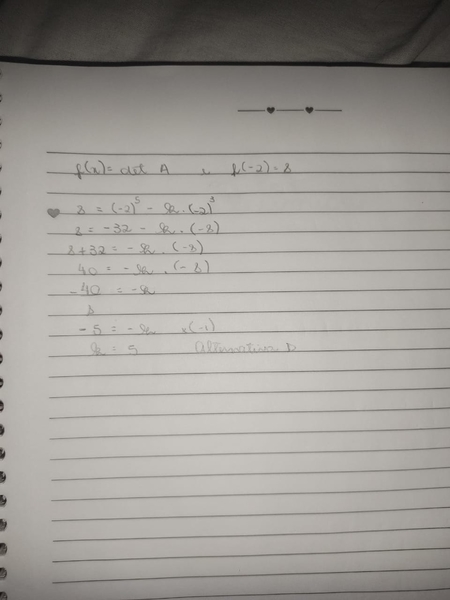 f(x) = det A e f(-2) = 8
8 = (-2)⁵ - k . (-2)³
8 = -32 - k . (-8)
8 + 32 = - k . (-8)
40 = - k . (-8)
-40 = -k
8
-5 = -k x(-1)
k = 5 Alternativa D